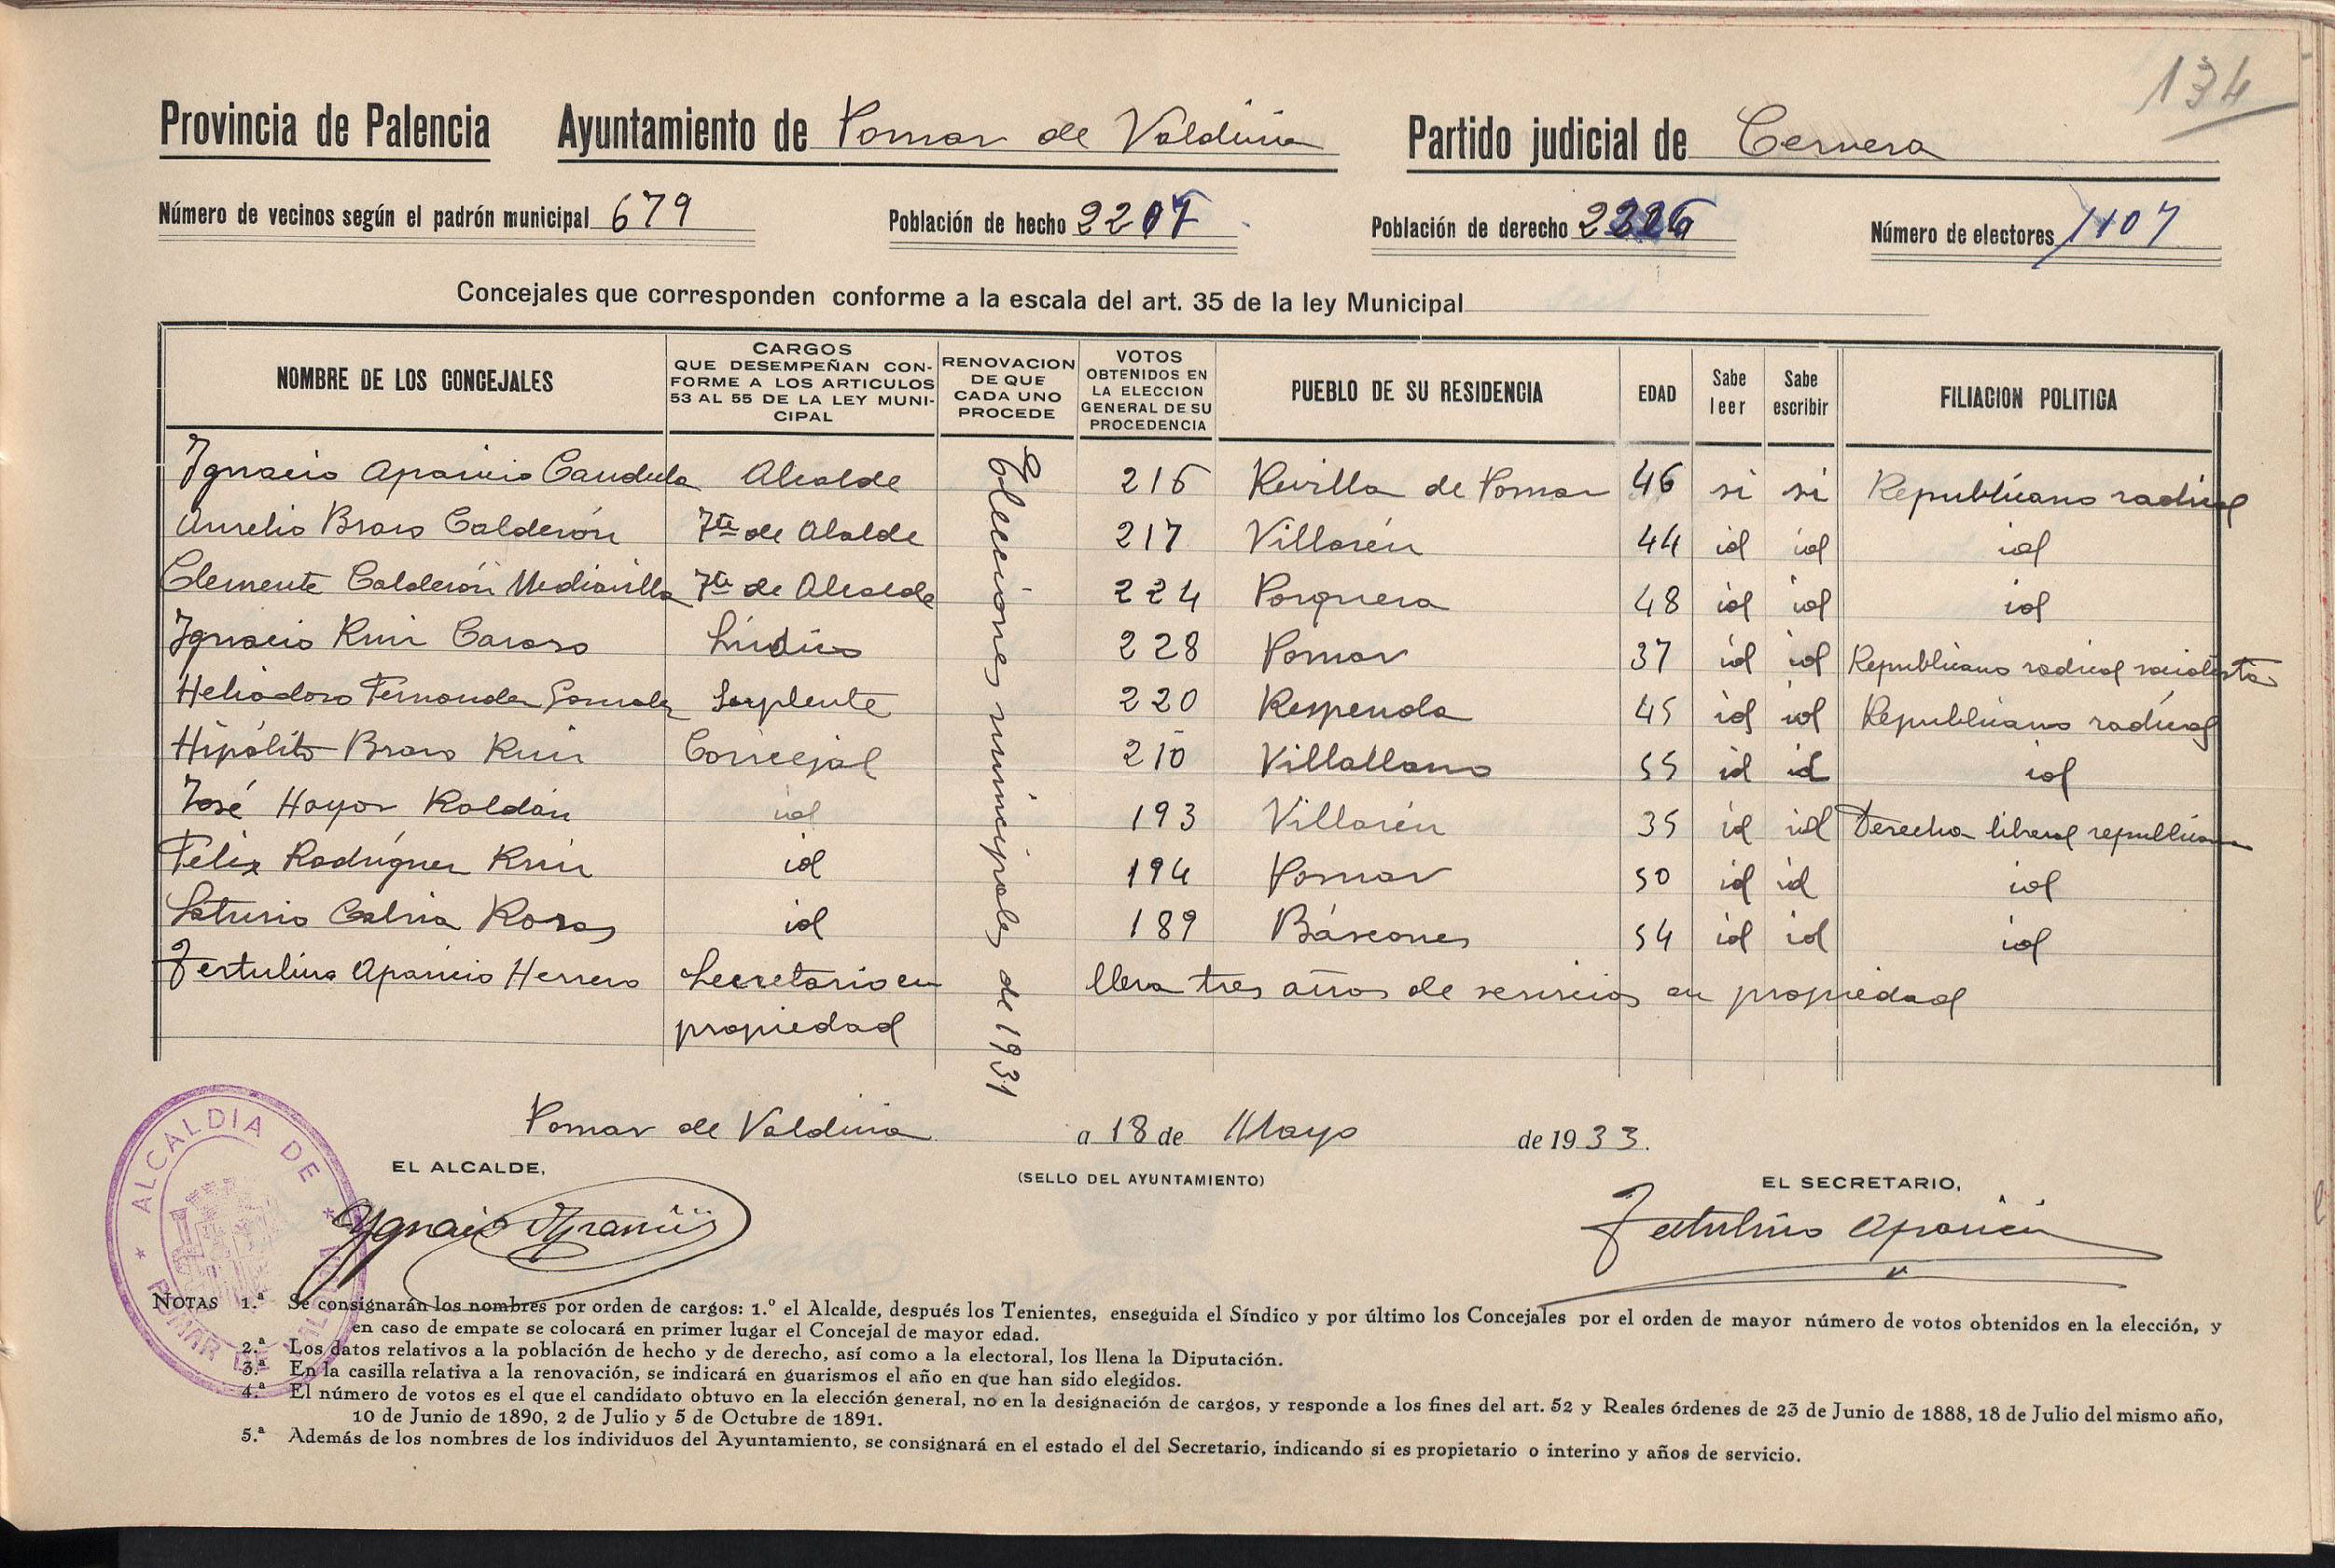 134
Provincia de Palencia Ayuntamiento de Pomar de Valdivia Partido judicial de Cervera
Número de vecinos según el padrón municipal 679 Población de hecho 2207 Población de derecho Número de electores 1107
Concejales que corresponden conforme a la escala del art. 35 de la ley Municipal
NOMBRE DE LOS CONCEJALES
CARGOS
QUE DESEMPEÑAN CON-
FORME A LOS ARTICULOS
53 AL 55 DE LA LEY MUNI-
CIPAL
RENOVACION
DE QUE
CADA UNO
PROCEDE
VOTOS
OBTENIDOS EN
LA ELECCION
GENERAL DE SU
PROCEDENCIA
PUEBLO DE SU RESIDENCIA
EDAD
Sabe
leer
Sabe
escribir
FILIACION POLITICA
Elecciones municipales de 1931
Ygnacio Aparicio Alcalde 216 Revilla de Pomar 46 si si Republicano radical
Aurelio Bravo Calderón Tte de Alcalde 217 Villarén 44 id id id
Clemente Calderón Mediavilla Tte de Alcalde 224 Porquera 48 id id id
Ygnacio Ruiz Síndico 228 Pomar 37 id id Republicano radical socialista
Heliodoro Fernandez Gonzalez Suplente 220 Respenda 45 id id Republicano radical
Hipólito Bravo Ruiz Concejal 210 Villallano 55 id id id
José Hoyos Roldán id 193 Villarén 35 id id Derecha liberal republicana
Felix Rodriguez Ruiz id 194 Pomar 50 id id id
Saturio id 189 Báscones 54 id id id
Tertulino Aparicio Herrero Secretario en lleva tres años de servicios en propiedad
propiedad
Pomar de Valdivia a 18 de Mayo de 1933.
EL ALCALDE,
(SELLO DEL AYUNTAMIENTO)
EL SECRETARIO,
Ygnacio Aparicio
Tertulino Aparicio
ALCALDIA DE
POMAR DE VALDIVIA
NOTAS 1.ª Se consignarán los nombres por orden de cargos: 1.º el Alcalde, después los Tenientes, enseguida el Síndico y por último los Concejales por el orden de mayor número de votos obtenidos en la elección, y
en caso de empate se colocará en primer lugar el Concejal de mayor edad.
2.ª Los datos relativos a la población de hecho y de derecho, así como a la electoral, los llena la Diputación.
3.ª En la casilla relativa a la renovación, se indicará en guarismos el año en que han sido elegidos.
4.ª El número de votos es el que el candidato obtuvo en la elección general, no en la designación de cargos, y responde a los fines del art. 52 y Reales órdenes de 23 de Junio de 1888, 18 de Julio del mismo año,
10 de Junio de 1890, 2 de Julio y 5 de Octubre de 1891.
5.ª Además de los nombres de los individuos del Ayuntamiento, se consignará en el estado el del Secretario, indicando si es propietario o interino y años de servicio.